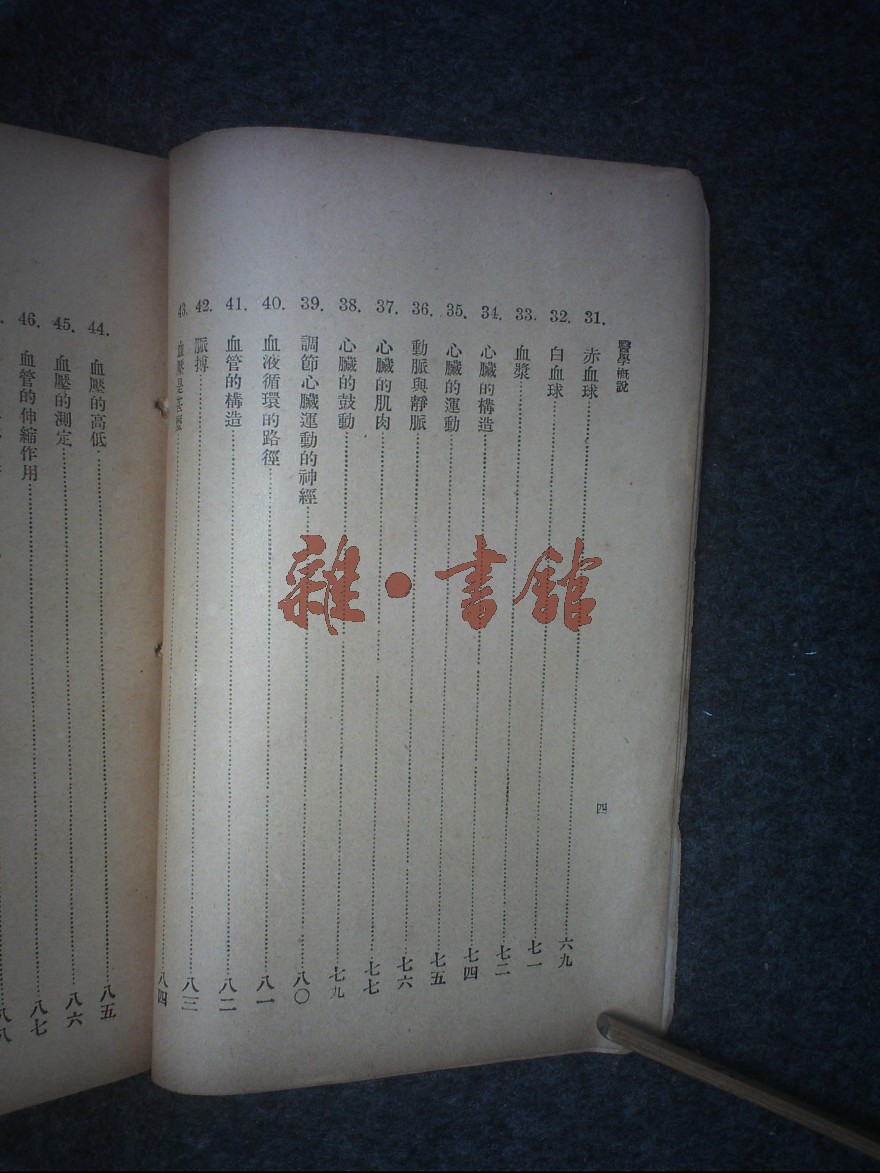 醫學概說
31. 赤血球 六九
32. 白血球 七一
33. 血漿 七二
34. 心臟的構造 七四
35. 心臟的運動 七五
36. 動脈與靜脈 七六
37. 心臟的肌肉 七七
38. 心臟的鼓動 七九
39. 調節心臟運動的神經 八〇
40. 血液循環的路徑 八一
41. 血管的構造 八二
42. 脈搏 八三
43. 血壓是甚麼 八四
四
44. 血壓的高低 八五
45. 血壓的測定 八六
46. 血管的伸縮作用 八七
八八
雜·書館